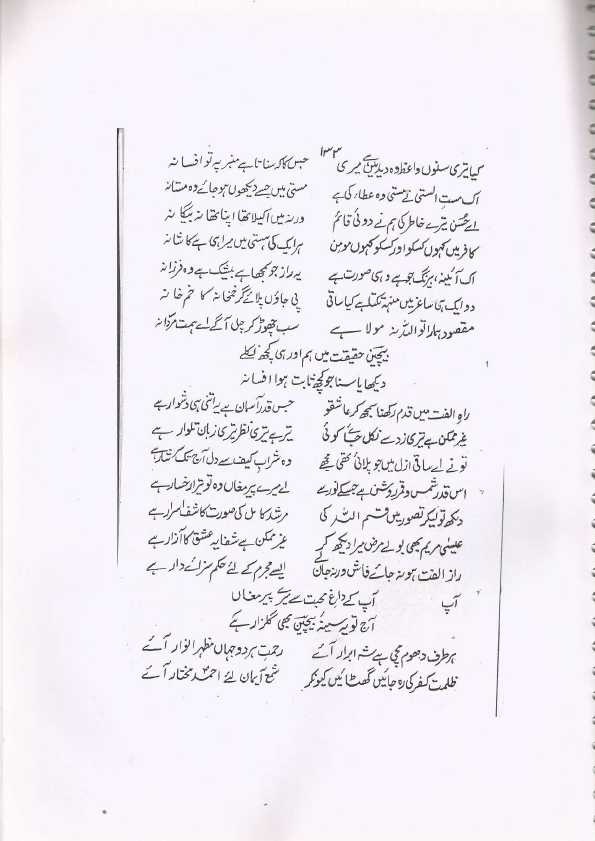 ۱۳۳
کیا تیری سنوں واعظ وہ دید نہیں ہے میری جس کا کہ سناتا ہے منبر پہ تو افسانہ
اک مست الستی نے مستی وہ عطار کی ہے مستی میں جسے دیکھوں ہو جائے وہ مستانہ
اے حسن تیرے خاطر کی ہم نے دوئی قائم ورنہ میں اکیلا تھا اپنا تھا نہ بیگانہ
کافر میں کہوں کسکو اور کسکو کہوں مومن ہر ایک کی ہستی میں میرا ہی ہے کاشانہ
اک آئینہ، بیرنگ جو ہے وہی صورت ہے یہ راز جو سمجھا ہے بیشک ہے وہ فرزانہ
دو ایک ہی ساغر میں منہ تکتا ہے کیا ساقی پی جاؤں پلائے گر خمخانہ کا خم خانہ
مقصود ہمارا تو اللہ نہ مولا ہے سب چھوڑ کر چل آگے اے ہمت مردانہ
بیچین حقیقت میں ہم اور ہی کچھ نکلے
دیکھا یا سنا جو کچھ ثابت ہوا افسانہ
راہ الفت میں قدم رکھنا سمجھ کر عاشقو جس قدر آسان ہے یہ اتنی ہی دشوار ہے
غیر ممکن ہے تیری زد سے نکل جائے کوئی تیر ہے تیری نظر تیری زبان تلوار ہے
تو نے اے ساقی ازل میں جو پلائی تھی مجھے وہ شراب کیف سے دل آج تک سرشار ہے
اس قدر شمس و قمر روشن ہے جسکے نور سے اے میرے پیر مغاں وہ تو تیرا رخسار ہے
دیکھ تو لیکر تصور میں قسم اللہ کی مرشد کامل کی صورت کاشف اسرار ہے
عیسٰی مریم بھی بولے مرض میرا دیکھ کر غیر ممکن ہے شفا یہ عشق کا آزار ہے
راز الفت ہو نہ جائے فاش ورنہ جان لے ایسے مجرم کے لئے حکم سزائے دار ہے
آپ آپ کے داغ محبت سے میرے پیر مغاں
آج تو یہ سینۂ بیچین بھی گلزار ہے
ہر طرف دھوم مچی ہے شہ ابرار آئے رحمت ہر دو جہاں مظہر انوار آئے
ظلمت کفر کی رہ جائیں گھٹائیں کیونکر شمع ایمان لئے احمد مختار آئے